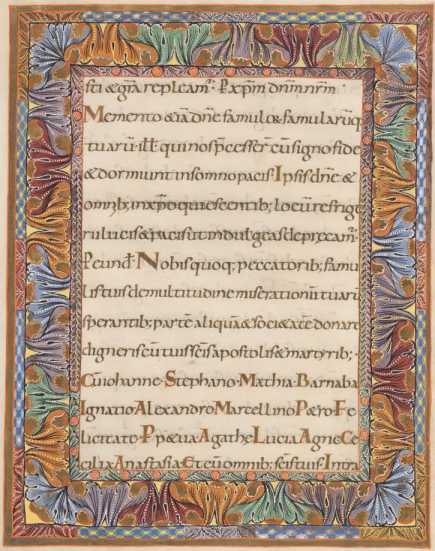 sci & gra repleam̄. P xpm dnm nrm̄
Memento &iā dne famulo& famularūq
tuarū ill̄ qui nos p̄cesser̄ cū signo fide
& dormiunt in somno pacis. Ipsis dne &
omnib; in xpo quiescentib; locū refrige
rii lucis & pacis ut indulgeas deprecam̄
P eund̄. Nobis quoq; peccatorib; famu
lis tuis de multitudine miserationū tuarū
sperantib; partē aliquā & soci&atē donare
digneris cū tuis sc̄is apostolis & martyrib;
Cū iohanne. Stephano. Mathia. Barnaba
Ignatio. Alexandro. Marcellino. P&ro. Fe
licitate. Pp&ua. Agathe. Lucia. Agne. Ce
cilia. Anastasia. Et cū omnib; sc̄is tuis. Intra